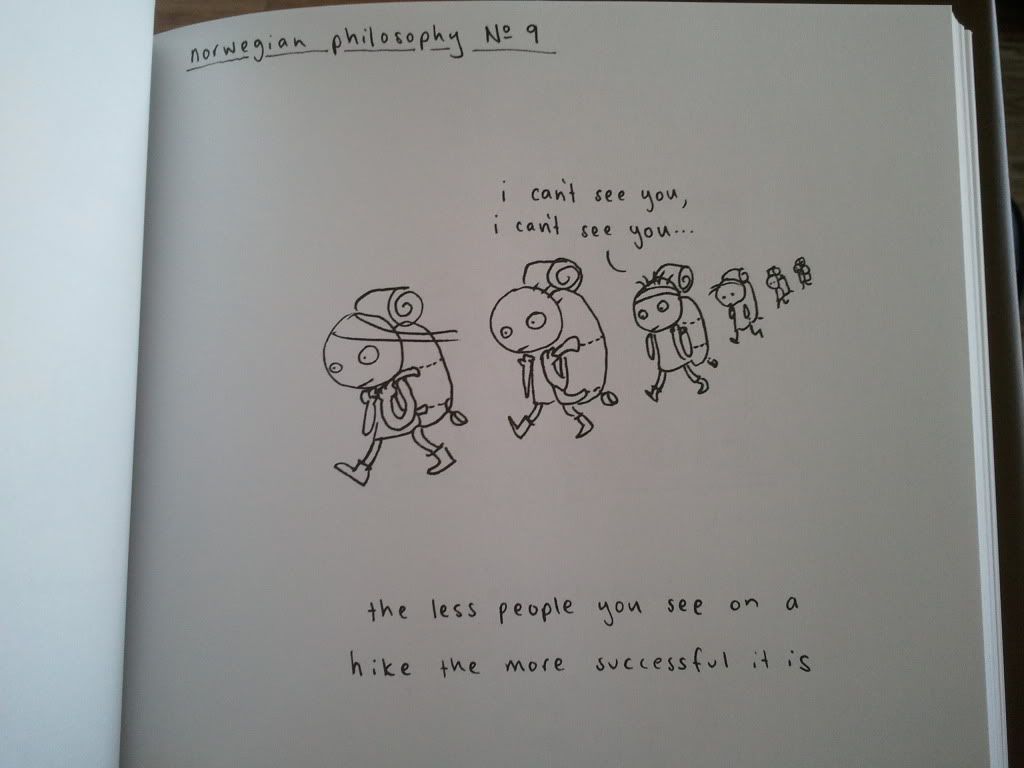 norwegian philosophy Nº 9
i can't see you,
i can't see you...
the less people you see on a
hike the more successful it is